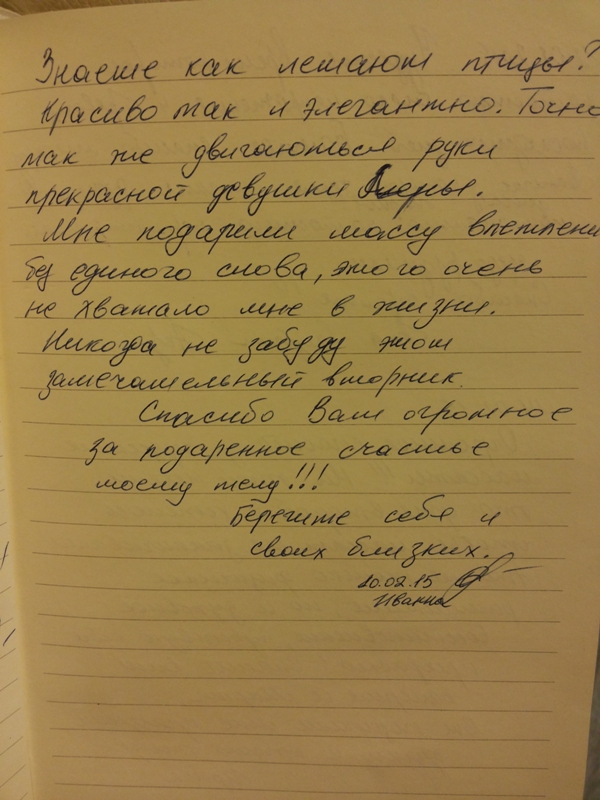 Знаете как летают птицы?
Красиво так и элегантно. Точно
так же двигаються руки
прекрасной девушки
Мне подарили массу впетлени
без единого слова, этого очень
не хватало мне в жизни.
Никогда не забуду этот
замечательный вторник.
Спасибо Вам огромное
за подаренное счастье
моему телу!!!
Берегите себя и
своих близких.
10.02.15
Иванна